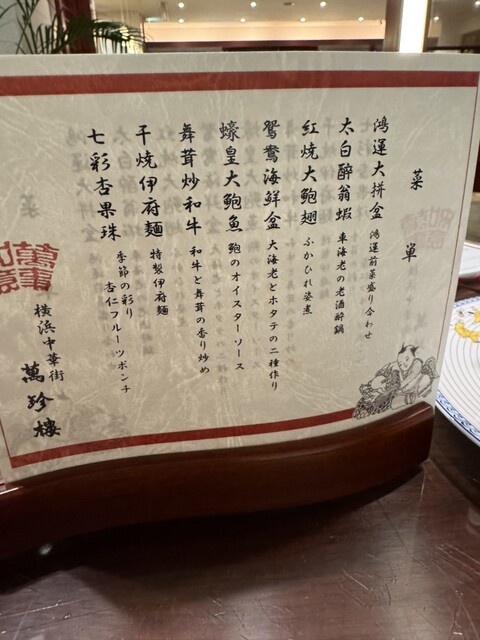 菜単
鴻運大拼盆 鴻運前菜盛り合わせ
太白醉翁蝦 車海老の老酒醉鍋
紅焼大鮑翅 ふかひれ姿煮
鴛鴦海鮮盆 大海老とホタテの二種作り
蠔皇大鮑魚 鮑のオイスターソース
舞茸炒和牛 和牛と舞茸の香り炒め
干焼伊府麺 特製伊府麺
七彩杏果珠 季節の彩り
杏仁フルーツポンチ
横浜中華街
萬珍樓